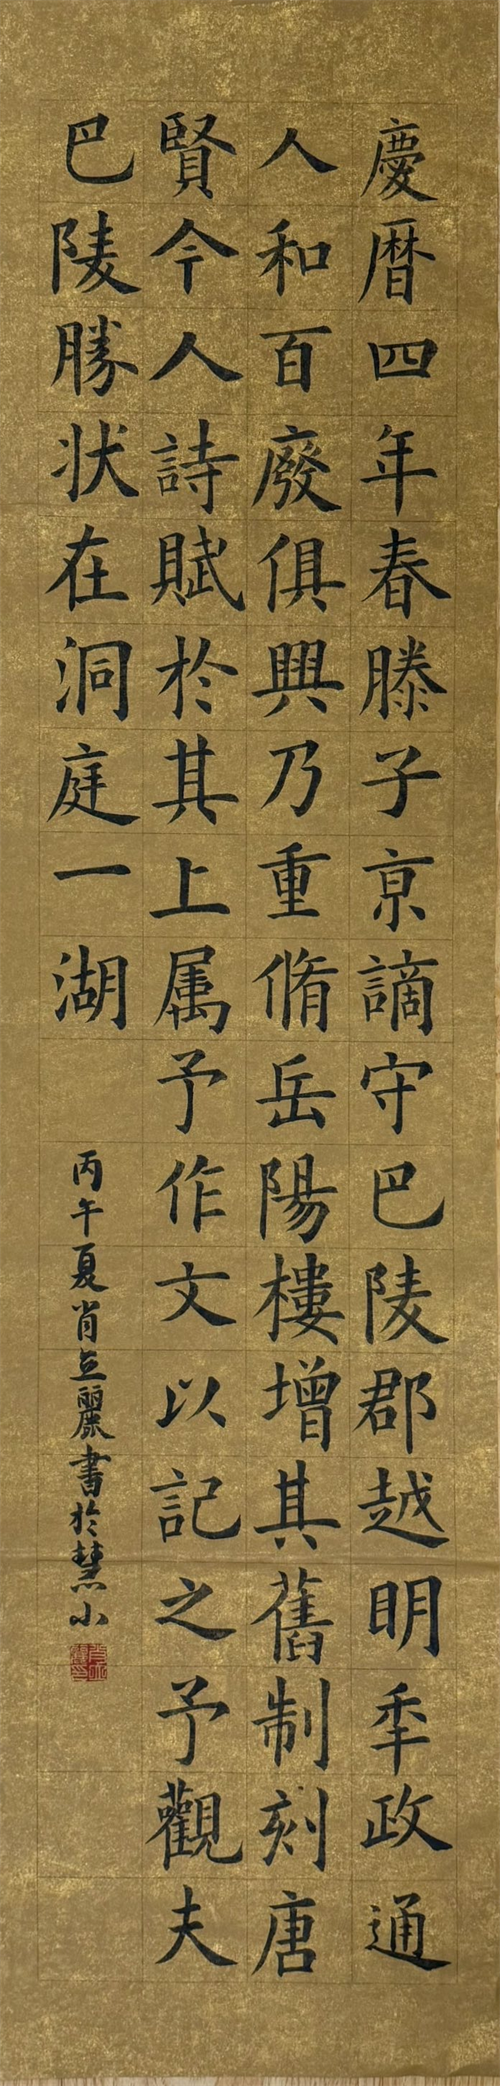 慶暦四年春滕子京謫守巴陵郡越明秊政通
人和百廢俱興乃重脩岳陽樓增其舊制刻唐
賢今人詩賦於其上属予作文以記之予觀夫
巴陵勝状在洞庭一湖
丙午夏肖立麗書於慧小